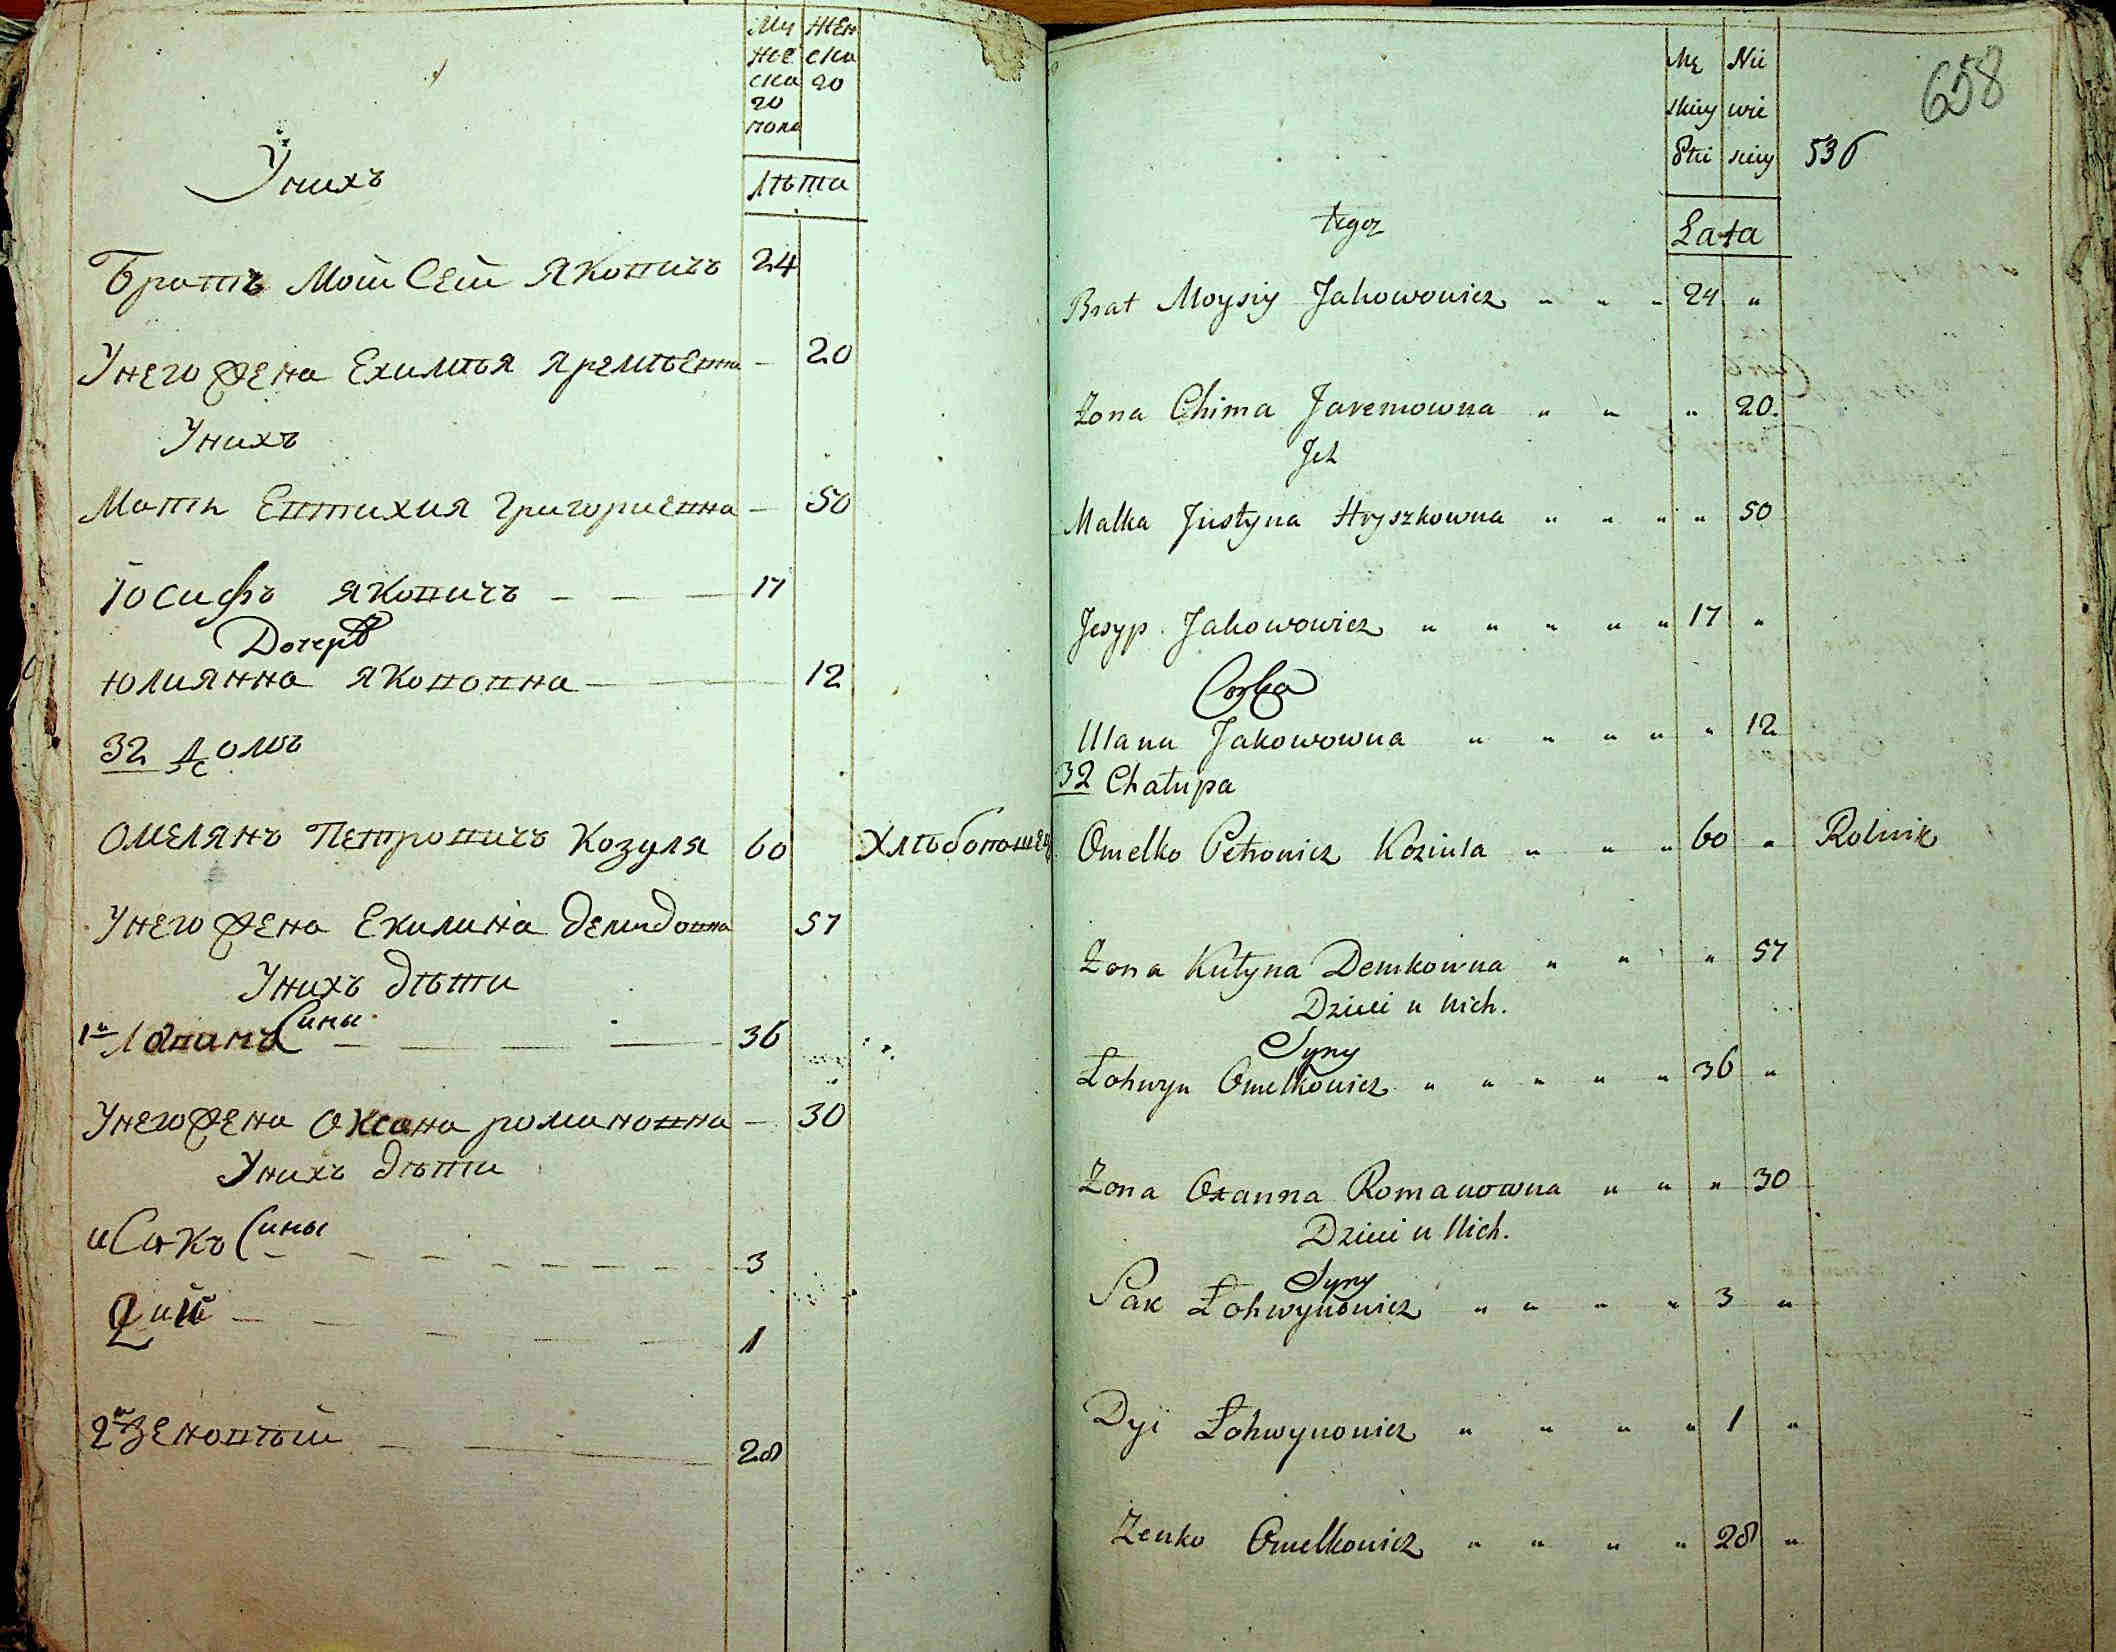 Му
жес
ска
го
пола
жен
ска
го
лѣта
Унихъ
Братъ Мойсей Яковичъ 24
Унего жена Ехимья Яремѣевна — 20
Унихъ
Мать Евтихия Григориевна — 50
Іосифъ Яковичъ — — — 17
Дочерѣ
Юлиянна Якововна — 12
32 домъ
Омелянъ Петровичъ Козуля 60 Хлѣбопашец
Унего жена Екилина Демидовна 57
Унихъ дѣти
Сины
1й Логвинъ — — — — 36
Унего жена Оксана Романовна — 30
Унихъ дѣти
Сины
исакъ — — — — — — — 3
Дий — — — — — 1
2й Зеновѣй — — 28
658
Mę
skiey
Płci
Nie
wie
sciey
536
Lata
tegoż
Brat Moysiy Jakowowicz „ „ „ 24 „
Żona Chima Jaremowna „ „ „ 20.
Ich
Matka Justyna Hryszkowna „ „ „ „ 50
Jesyp Jakowowicz „ „ „ „ „ 17 „
Corka
Ulana Jakowowna „ „ „ „ „ 12
32 Chałupa
Omelko Petrowicz Koziula „ „ „ 60 „ Rolnik
Żona Kulyna Demkowna „ „ „ 57
Dzieci u Nich.
Syny
Łohwyn Omelkowicz „ „ „ „ „ 36 „
Żona Oxanna Romanowna „ „ „ 30
Dzieci u Nich.
Syny
Sak Łohwynowicz „ „ „ „ 3 „
Dyi Łohwynowicz „ „ „ „ 1 „
Zenko Omelkowicz „ „ „ „ 28 „